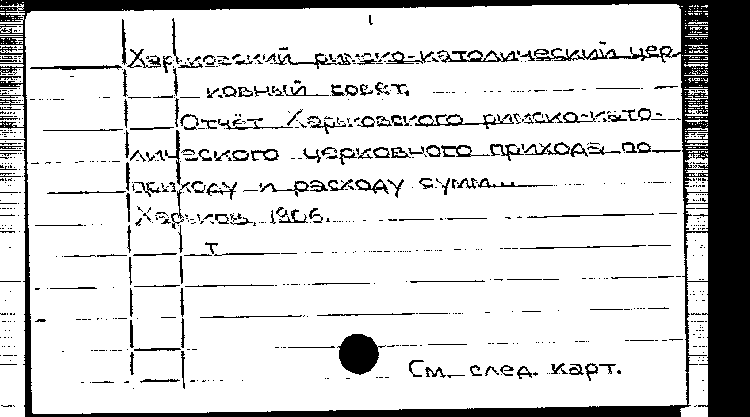 1
Харьковский римско-католический цер-
ковный совет.
Отчёт Харьковского римско-като-
лического церковного прихода по
приходу и расходу сумм...
Харьков, 1906.
т
См. след. карт.